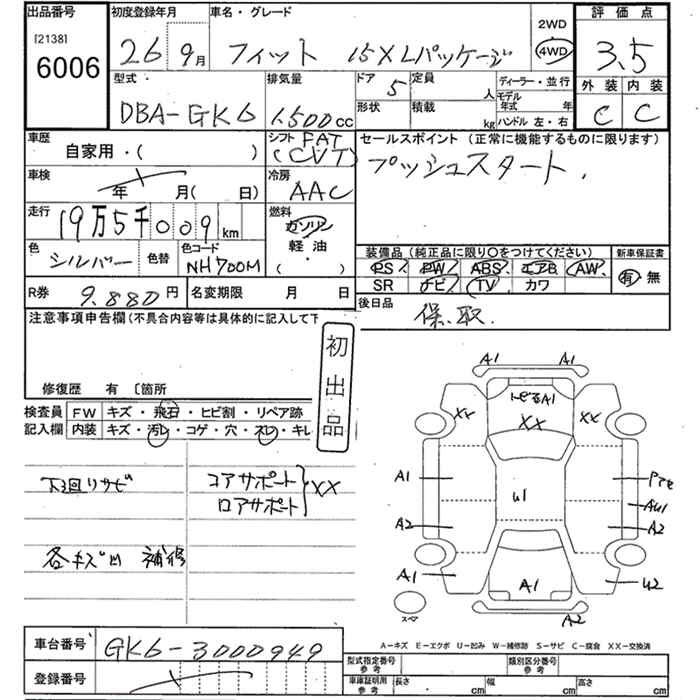 出品番号 初度登録年月 車名・グレード 2WD 評価点
[2138] 6006 26 9月 フィット 15XLパッケージ 4WD 3.5
型式 排気量 ドア 5 定員 人 ディーラー・並行 外装 内装
DBA-GK6 1,500cc 形状 積載 kg モデル年式 年 C C
ハンドル 左・右
車歴 自家用・( ) シフト FAT (CVT) セールスポイント (正常に機能するものに限ります)
プッシュスタート.
車検 年 月( 日) 冷房 AAC
走行 19万5千009km 燃料 ガソリン
軽油・
( )
色 シルバー 色替 色コード NH700M
装備品(純正品に限り○をつけてください) 新車保証書
PS PW ABS エアB AW 有 無
SR ナビ TV カワ
R券 9.880円 名変期限 月 日 後日品 保.取.
注意事項申告欄(不具合内容等は具体的に記入して下
初出品
修復歴 有 〔箇所
検査員 FW キズ・飛石・ヒビ割・リペア跡
記入欄 内装 キズ・汚レ・コゲ・穴・スレ・キレ
下廻リサビ コアサポート
ロアサポート XX
各キズ凹 補修
A1 A1
トビ石A1
XX XX XX
A1 U1
AU1
A2 A2
A1 A1 U2
スペア A2
A-キズ E-エクボ U-凹み W-補修跡 S-サビ C-腐食 XX-交換済
車台番号 GK6-3000949
登録番号
型式指定番号 参考 類別区分番号 参考
車庫証明用 参考 長さ ・ cm 幅 cm 高さ cm